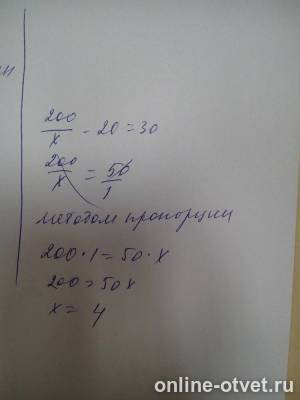 200/x - 20 = 30
200/x = 50/1
методом пропорции
200 · 1 = 50 · x
200 = 50x
x = 4
online-otvet.ru